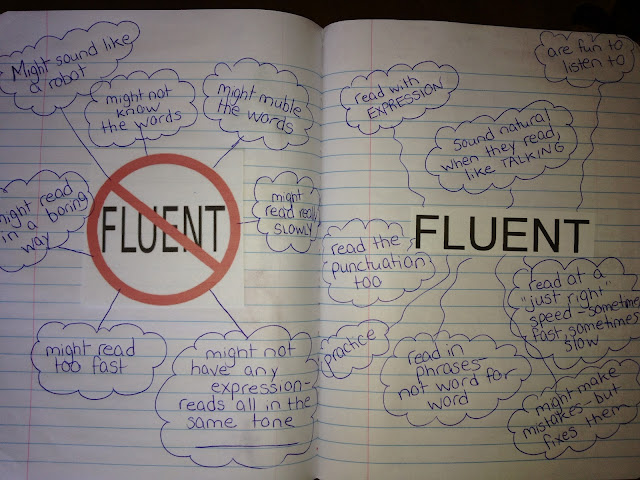 Might sound like
a robot
might not
know
the words
might muble
the words
might read
in a boring
way
FLUENT
might
read really
SLOWLY
might read
too fast
might not
have any
expression-
reads all in the
same tone
read with
EXPRESSION
are fun to
listen to
sound natural
when they read,
like TALKING
FLUENT
read the
punctuation
too
practice
read in
phrases-
not word for
word
read at a
"just right"
speed-sometimes
fast, sometimes
slow
might make
mistakes-but
fixes them